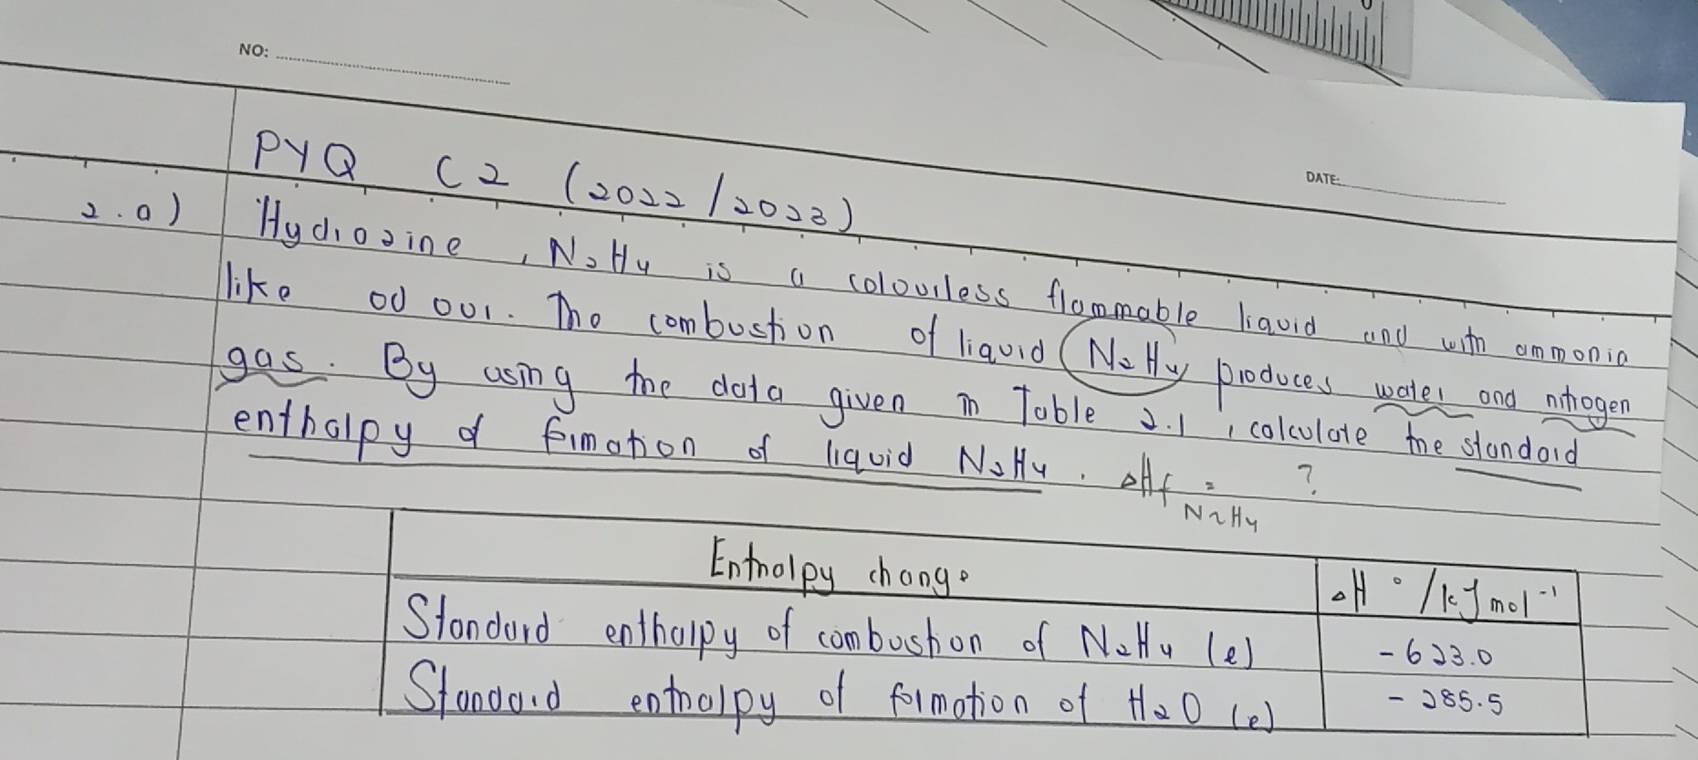 NO:
DATE:
PYQ C2 (2022/2023)
2.a) Hydrazine, N2H4 is a colourless flammable liquid and with ammonia
like odour. The combustion of liquid N2H4 produces water and nitrogen
gas. By using the data given in Table 2.1, calculate the standard
enthalpy of formation of liquid N2H4. ΔHf N2H4 = ?
Enthalpy change ΔH°/kJmol⁻¹
Standard enthalpy of combustion of N2H4 (l) -623.0
Standard enthalpy of formation of H2O (l) -285.5